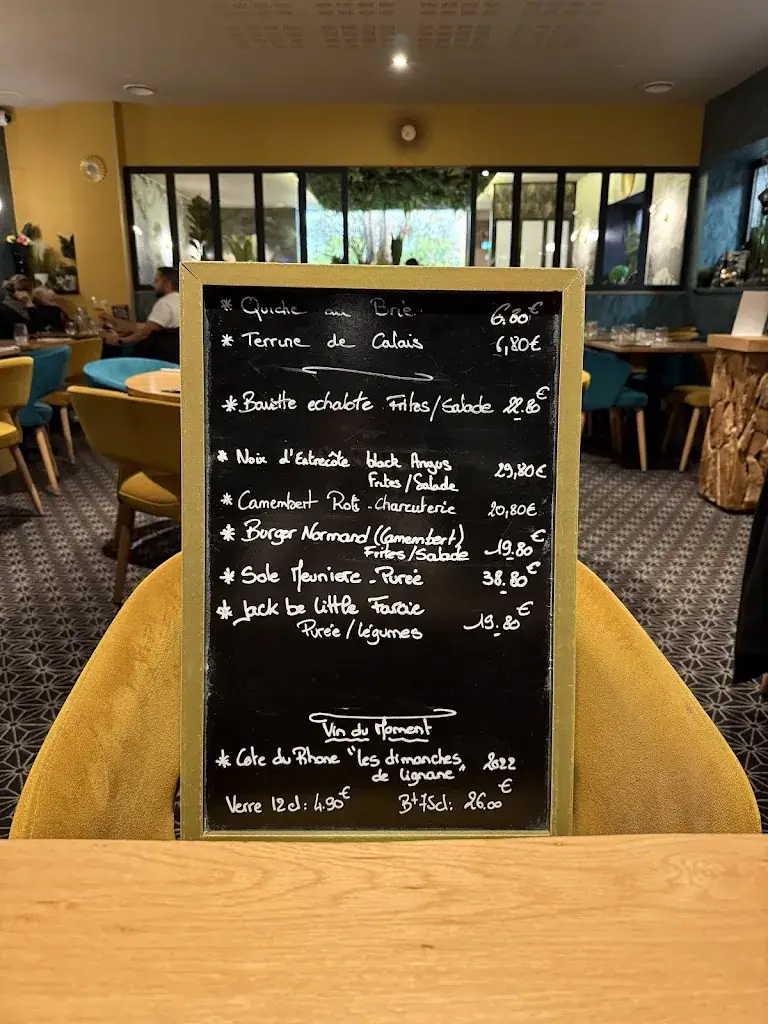 * Quiche au Brie 6.80€
* Terrine de Calais 6,80€
* Bavette echalote Frites/Salade 22.80€
* Noix d'Entrecôte black Angus 29,80€
Frites/Salade
* Camembert Roti - charcuterie 20,80€
* Burger Normand (Camembert)
Frites/Salade 19.80€
* Sole Meuniere - Purée 38.80€
* Jack be little Farcie
Purée/légumes 19.80€
Vin du Moment
* Cote du Rhone "les dimanches 2022
de lignane"
Verre 12cl: 4.90€ Btl 75cl: 26.00€